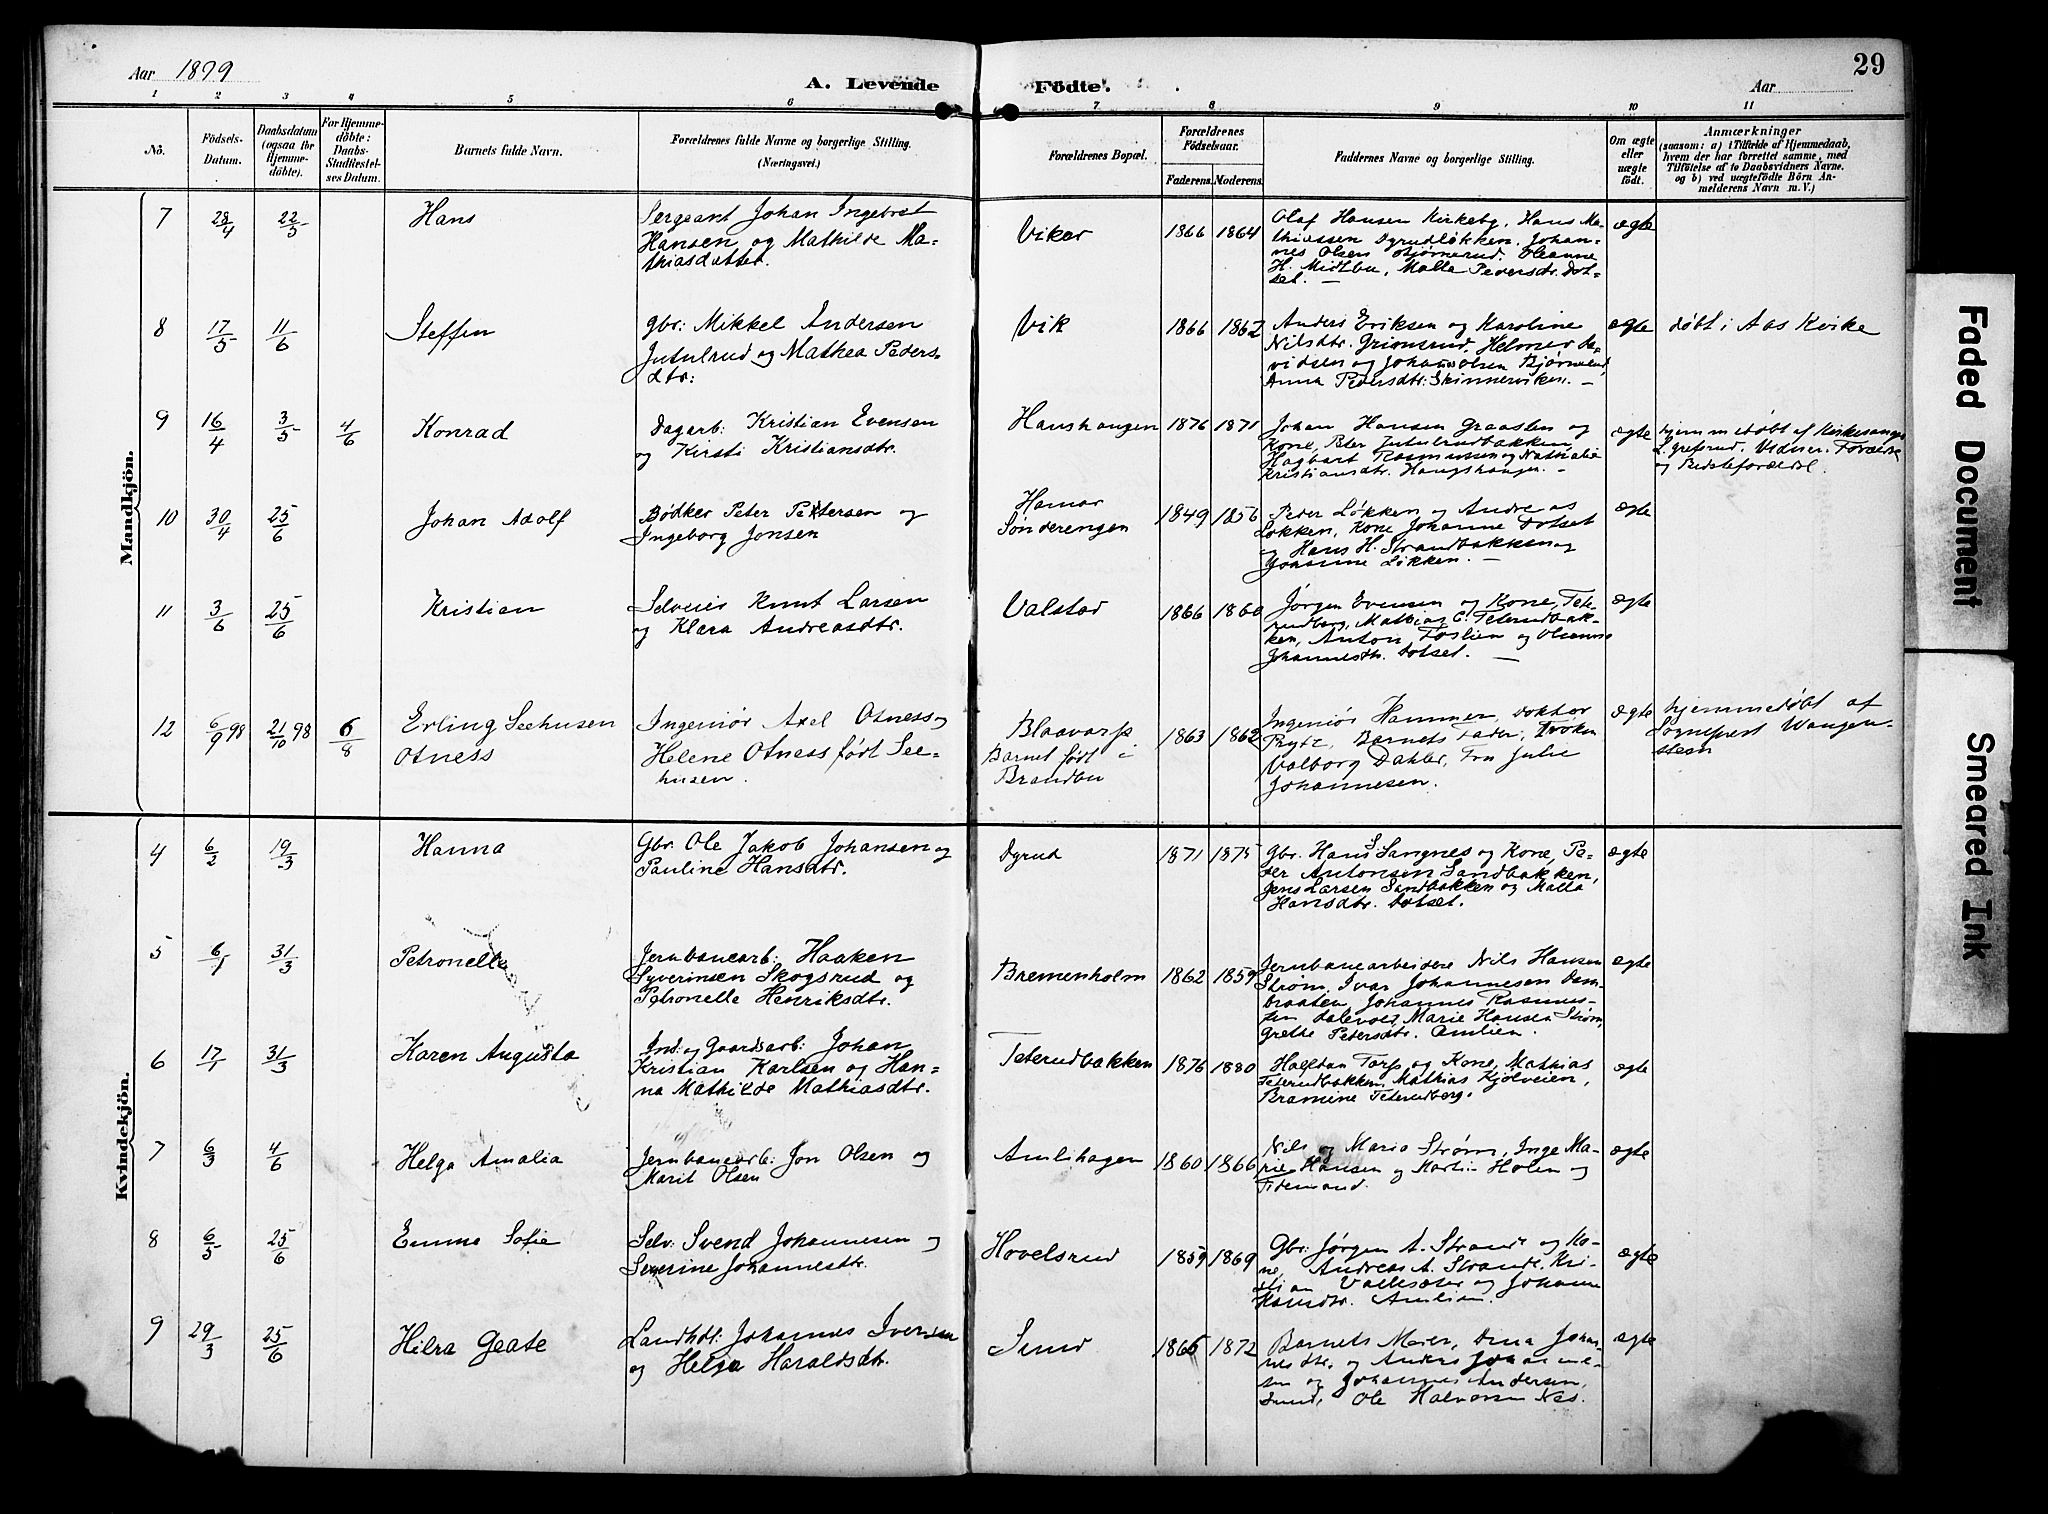 Aar 1899
A. Levende Födte.
29
Aar
1 2 3 4 5 6 7 8 9 10 11
No.
Födsels-Datum.
Daabsdatum (ogsaa for Hjemmedöbte).
For Hjemmedöbte: Daabs-Stadfæstelses Datum.
Barnets fulde Navn.
Forældrenes fulde Navne og borgerlige Stilling. (Næringsvei.)
Forældrenes Bopæl.
Forældrenes Födselsaar.
Faderens. Moderens.
Faddernes Navne og borgerlige Stilling.
Om ægte eller uægte födt.
Anmærkninger
(saasom: a) i Tilfælde af Hjemmedaab, hvem der har forrettet samme, med Tilföielse af to Daabsvidners Navne. og b) ved uægtefödte Börn Anmelderens Navn m. V.)
Mandkjön.
7 28/4 22/5 Hans
Sergeant Johan Ingebret
Hansen og Mathilde Ma-
thiasdatter.
Viker 1866 1864
Olaf Hansen Kirkeby, Hans Ma-
thiassen Dyrudløkken. Johan-
nes Olsen Bjørnerud, Oleanne
H. Midtbu, Malle Pedersdtr. Dot-
set. —
ægte
8 17/5 11/6 Steffen
Gbr: Mikkel Andersen
Jutulrud og Mathea Peders-
dtr:
Vik 1866 1862
Anders Eriksen og Karoline
Nilsdtr. Grimsrud, Helmer Da-
vidsen og Johan Olsen Bjørnerud,
Anna Pedersdtr: Skinnerviken. —
ægte døbt i Aas Kirke
9 16/4 3/5 4/6 Konrad
Dagarb: Kristian Evensen
og Kirsti Kristiansdtr.
Haushaugen 1876 1871
Johan Hansen Graasten og
Kone, Peter Jutulrudbakken
Hagbart Rasmussen og Nathalie
Kristiansdtr. Haugshaugen. —
ægte
hjemmedøbt af Kirkesanger
L. Grefsrud. Vidner: Forældre
og Bedsteforældre.
10 30/4 25/6 Johan Adolf
Bødker Peter Pettersen og
Ingeborg Jonsen
Hamar
Sønderengen 1849 1856
Peder Løkken og Andreas
Løkken, Kone Johanne Dotset
og Hans H. Strandbakken og
Johanne Løkken. —
ægte
11 3/6 25/6 Kristian
Selveier Knut Larsen
og Klara Andreasdtr.
Valstad 1866 1860
Jørgen Evensen og Kone, Tete-
rudberg, Mathias C. Teterudbak-
ken, Anton Foslien og Oleanne
Johannesdtr. Dotset. —
ægte
12 6/9 98 21/10 98 6/8 Erling Seehusen
Otness
Ingeniør Axel Otness og
Helene Otness født See-
husen.
Blaavarp
Barnet født i
Brandbu
1863 1862
Ingeniør Hammer, Doktor
Prytz, Barnets Fader, Frøken
Valborg Dahler, Fru Julie
Johannesen.
ægte
hjemmedøbt af
Sogneprest Wangen-
steen
Kvindekjön.
4 6/2 19/3 Hanna
Gbr. Ole Jakob Johansen og
Pauline Hansdtr.
Dyrud 1871 1875
Gbr. Hans S. Sangnes og Kone, Pe-
der Antonsen Sandbakken,
Jens Larsen Sandbakken og Malla
Hansdtr. Dotset.
ægte
5 6/1 31/3 Petronelle
Jernbanearb: Haaken
Syverinsen Skogsrud og
Petronelle Henriksdtr.
Bremenholm 1862 1859
Jernbanearbeidere Nils Hansen
Strøm, Ivar Johannesen Dem-
braaten, Johannes Rasmus-
sen Dalevoet, Marie Hansen Strøm,
Grethe Petersdtr. Amlien.
ægte
6 17/1 31/3 Karen Augusta
Ind: og Gaardsarb: Johan
Kristian Karlsen og Han-
na Mathilde Mathiasdtr.
Teterudbakken 1876 1880
Halfdan Torp og Kone, Mathias
Teterudbakken, Mathias Kjølveien,
Bramine Teterudberg.
ægte
7 6/3 4/6 Helga Amalia
Jernbanearb: Jon Olsen og
Marit Olsen
Amlihagen 1860 1866
Nils og Maria Strøm, Inge Ma-
rie Hansen og Martin Holen og
Tidemand.
ægte
8 6/5 25/6 Emma Sofie
Selv: Svend Johannesen og
Severine Johannesdtr.
Hovelsrud 1859 1869
Gbr: Jørgen A. Strande og Ko-
ne, Andreas A. Strande, Kri-
stian Vallesæter og Johanne
Hansdtr. Amlien.
ægte
9 29/3 25/6 Hilda Geate
Landhdl: Johannes Iversen
og Helga Haraldsdtr.
Sund 1865 1872
Barnets Moder, Dina Johan-
nesdtr. og Anders Johanne-
sen og Johannes Andersen,
Sund, Ole Halvorsen Nes.
ægte
Faded Document
Smeared Ink